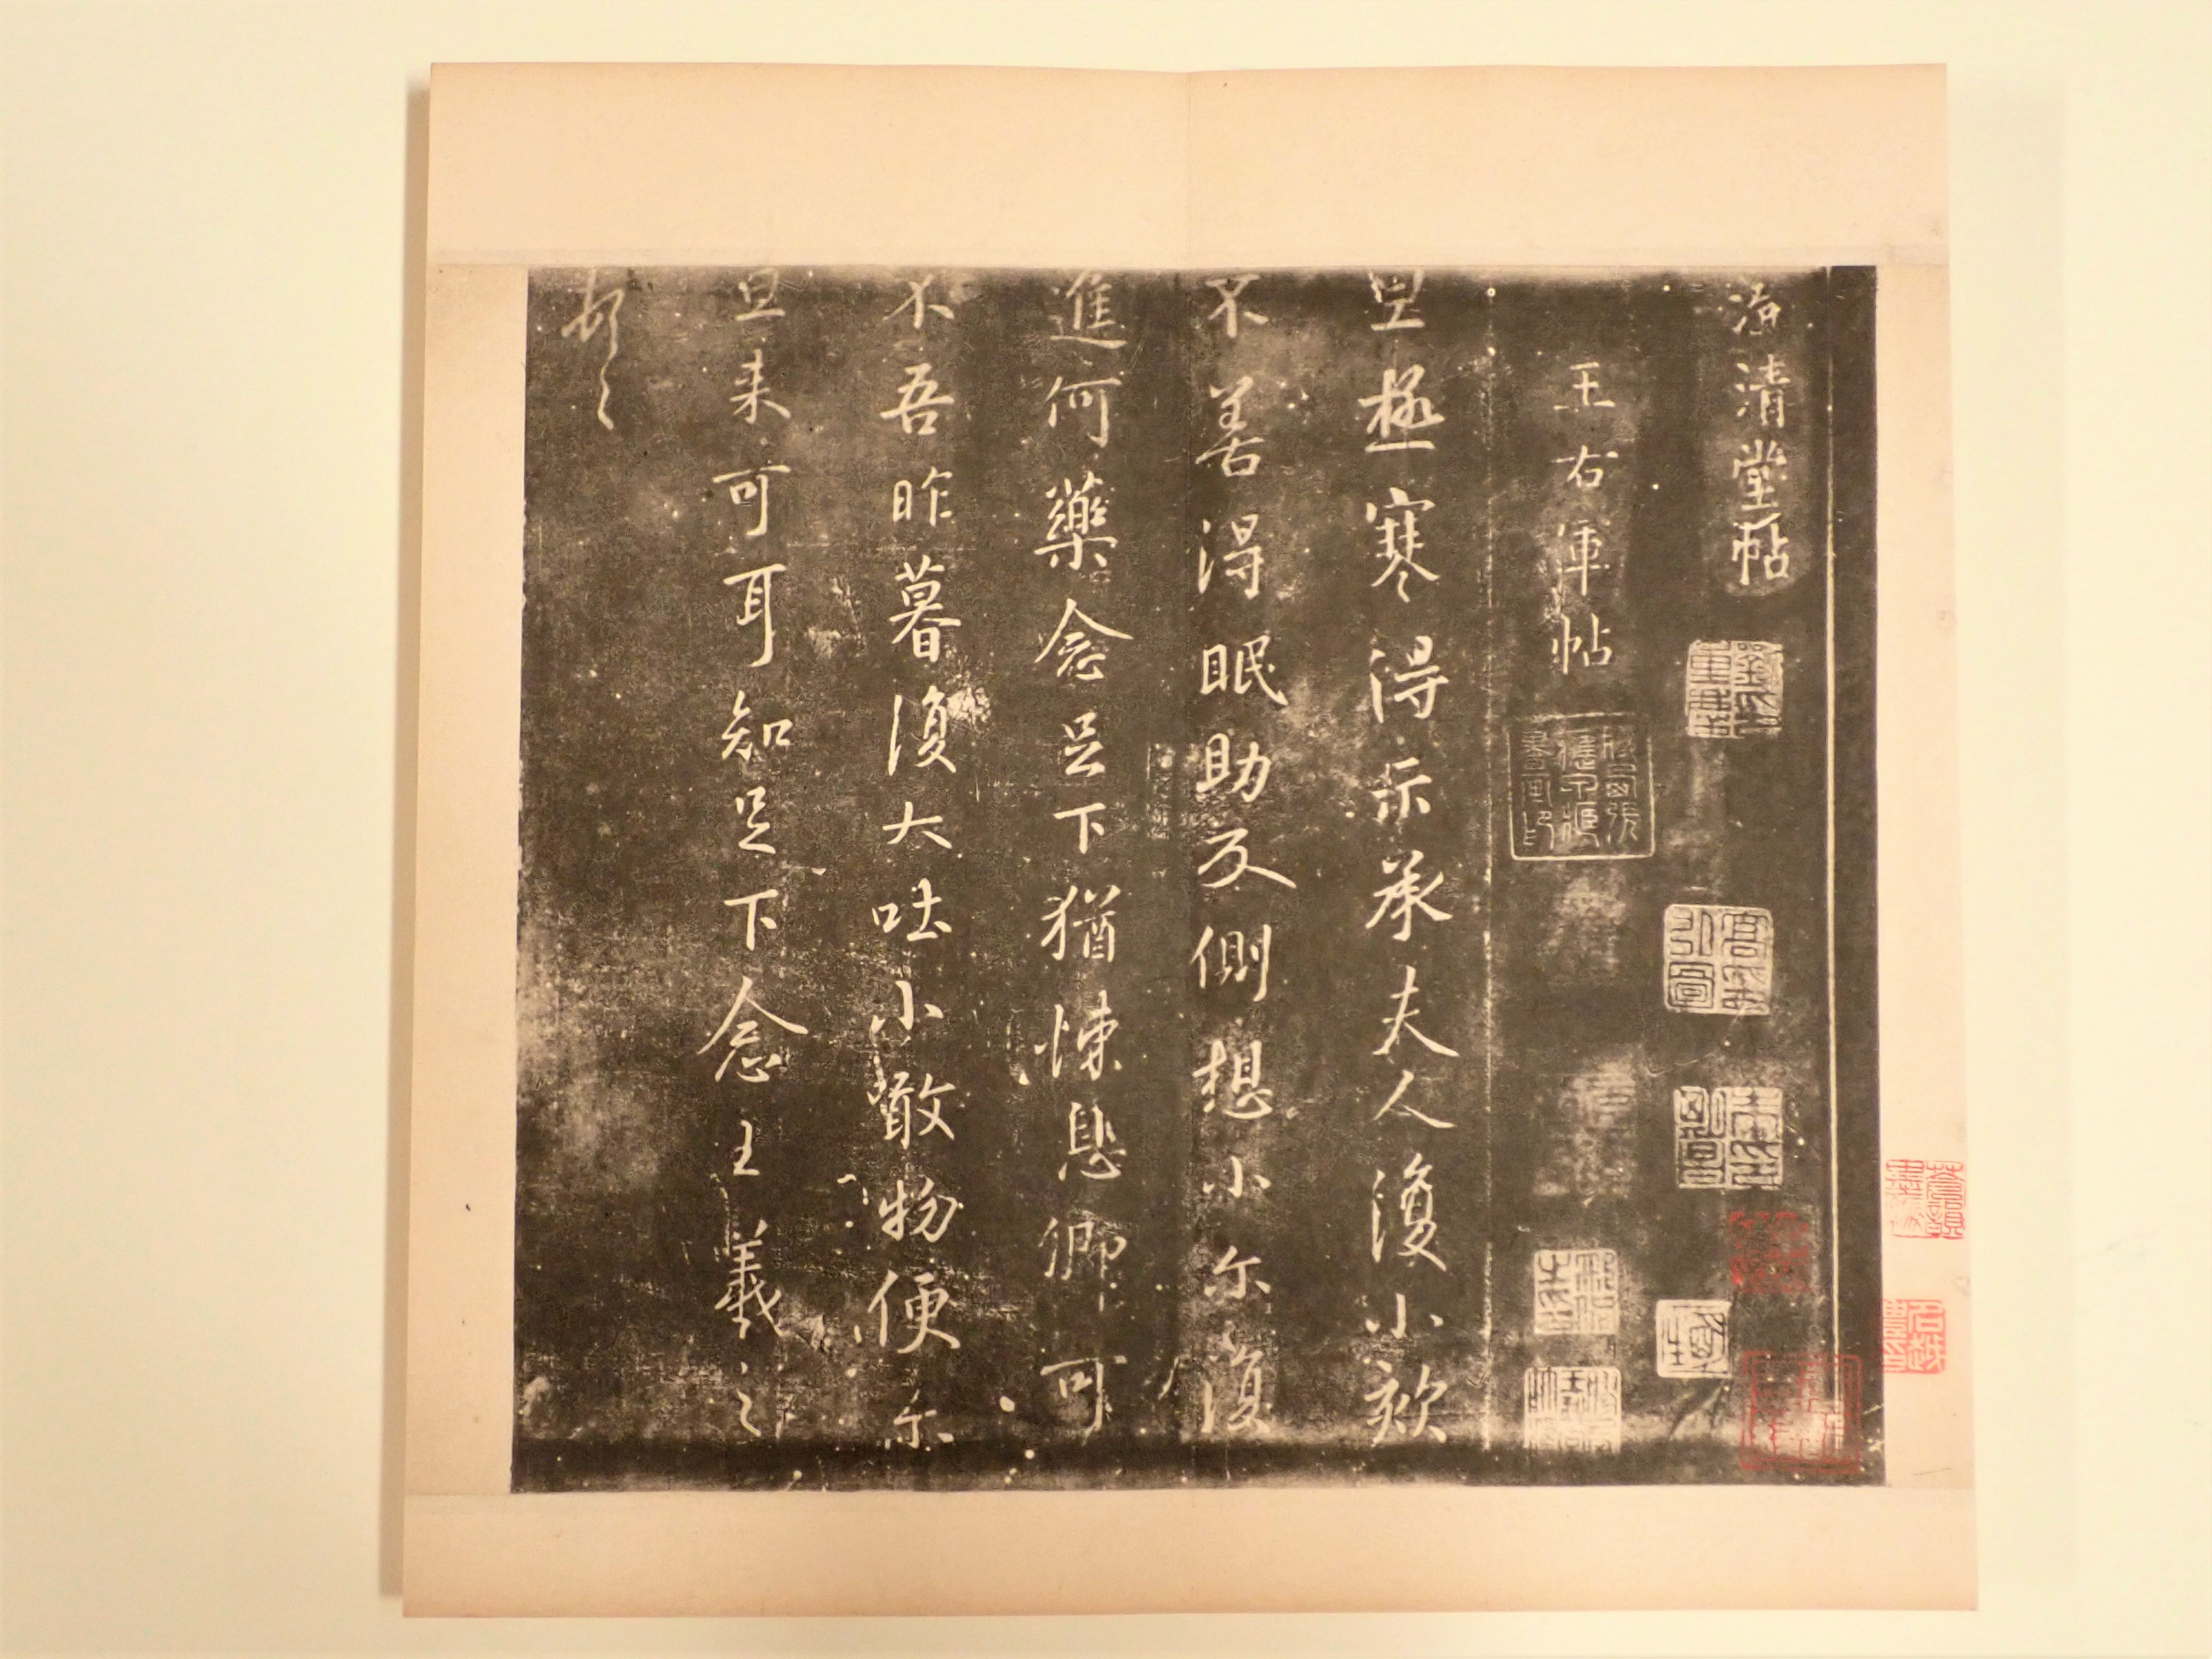 澄清堂帖
王右軍帖
旦極寒得示承夫人復小欬
不善得眠助反側想小尔復
進何藥念足下猶悚息卿可
不吾昨暮復大吐小噉物便尔
旦来可耳知足下念王羲之
頓首